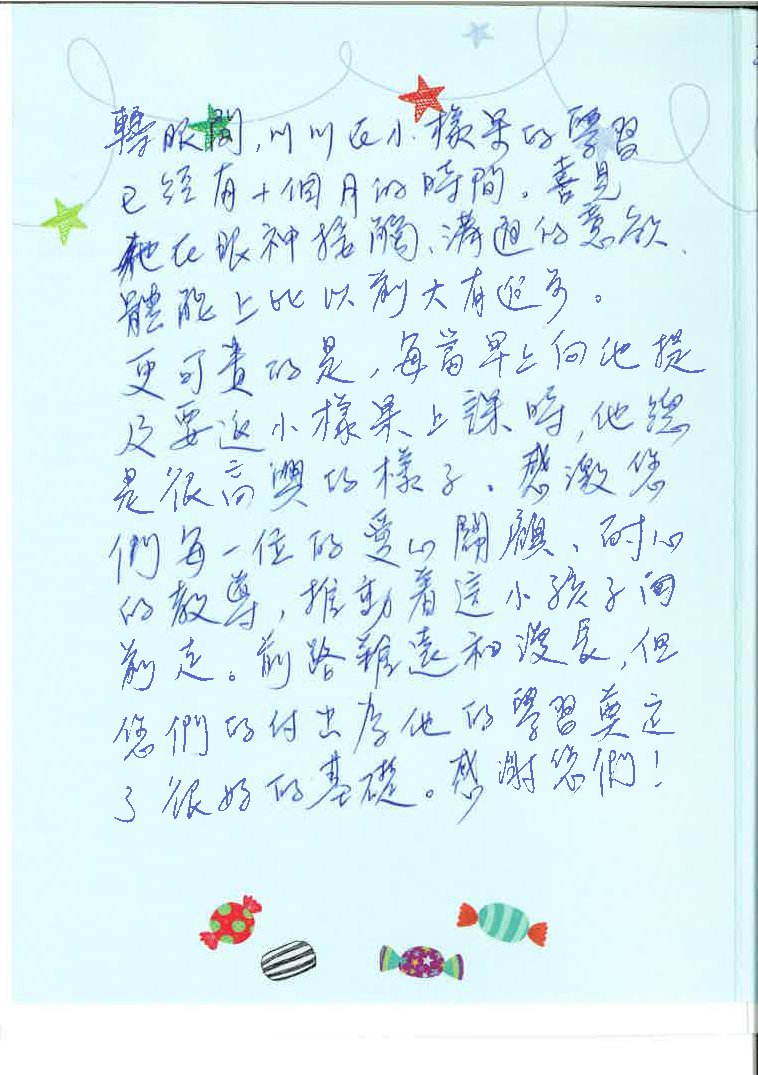 轉眼間,川川在小樣果的學習
已經有十個月的時間。喜見
他在眼神接觸、溝通的意欲、
體能上比以前大有進步。
更可貴的是,每當早上向他提
及要返小樣果上課時,他總
是很高興的樣子。感激您
們每一位的愛心關顧、耐心
的教導,推動着這小孩子向
前走。前路難遠和漫長,但
您們的付出為他的學習奠定
了很好的基礎。感謝您們!